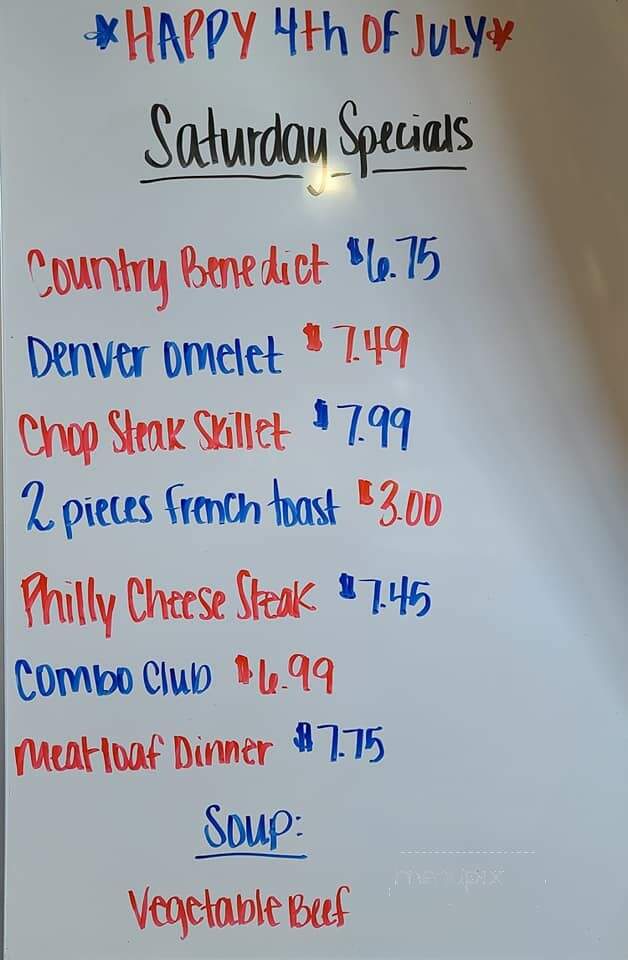 *HAPPY 4th OF JULY*
Saturday Specials
Country Benedict $6.75
Denver omelet $7.49
Chop Steak Skillet $7.99
2 pieces french toast $3.00
Philly Cheese Steak $7.45
Combo Club $6.99
Meatloaf Dinner $7.75
Soup:
Vegetable Beef
menupix